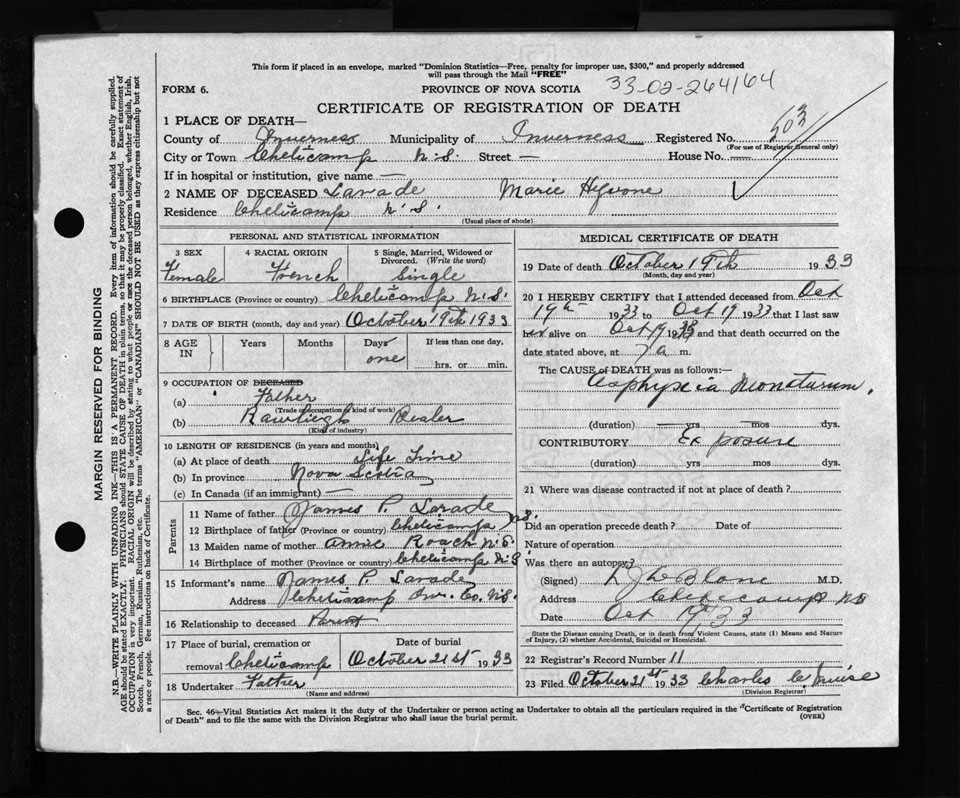 This form if placed in an envelope, marked "Dominion Statistics—Free, penalty for improper use, $300," and properly addressed
will pass through the Mail "FREE"
33-02-264164
FORM 6.
PROVINCE OF NOVA SCOTIA
CERTIFICATE OF REGISTRATION OF DEATH
1 PLACE OF DEATH—
County of Inverness Municipality of Inverness Registered No. 503
(For use of Registrar General only)
City or Town Cheticamp N.S. Street — House No. —
If in hospital or institution, give name —
2 NAME OF DECEASED Larade Marie Hyvone
Residence Cheticamp N.S.
(Usual place of abode)
PERSONAL AND STATISTICAL INFORMATION
3 SEX Female
4 RACIAL ORIGIN French
5 Single, Married, Widowed or Divorced. (Write the word) Single
6 BIRTHPLACE (Province or country) Cheticamp N.S.
7 DATE OF BIRTH (month, day and year) October 19th 1933
8 AGE IN Years Months Days one If less than one day, hrs. or min.
9 OCCUPATION OF DECEASED
(a) Father
(Trade occupation or kind of work)
(b) Rawliegh Dealer
(Kind of industry)
10 LENGTH OF RESIDENCE (in years and months)
(a) At place of death Life Time
(b) In province Nova Scotia
(c) In Canada (if an immigrant) —
Parents
11 Name of father James P. Larade
12 Birthplace of father (Province or country) Cheticamp N.S.
13 Maiden name of mother Annie Roach N.S.
14 Birthplace of mother (Province or country) Cheticamp N.S
15 Informant's name James P. Larade
Address Cheticamp Inv. Co. N.S.
16 Relationship to deceased Parent
17 Place of burial, cremation or removal Cheticamp
Date of burial October 21st 1933
18 Undertaker Father
(Name and address)
MEDICAL CERTIFICATE OF DEATH
19 Date of death October 19th 1933
(Month, day and year)
20 I HEREBY CERTIFY that I attended deceased from Oct
19th 1933 to Oct 19 1933 that I last saw
her alive on Oct 19 1933 and that death occurred on the
date stated above, at 7 a m.
The CAUSE of DEATH was as follows:—
Asphyxia Neonatorum.
(duration) yrs mos dys.
CONTRIBUTORY Exposure
(duration) yrs mos dys.
21 Where was disease contracted if not at place of death?
Did an operation precede death? Date of
Nature of operation
Was there an autopsy?
(Signed) LeBlanc M.D.
Address Cheticamp NS
Date Oct 19th 33
State the Disease causing Death, or in death from Violent Causes, state (1) Means and Nature
of Injury, (2) whether Accidental, Suicidal or Homicidal.
22 Registrar's Record Number 11
23 Filed October 21st 1933 Charles
(Division Registrar)
Sec. 46—Vital Statistics Act makes it the duty of the Undertaker or person acting as Undertaker to obtain all the particulars required in the "Certificate of Registration
of Death" and to file the same with the Division Registrar who shall issue the burial permit.
(OVER)
MARGIN RESERVED FOR BINDING
N.B.—WRITE PLAINLY WITH UNFADING INK—THIS IS A PERMANENT RECORD. Every item of information should be carefully supplied.
AGE should be stated EXACTLY. PHYSICIANS should STATE CAUSE OF DEATH in plain terms, so that it may be properly classified. Exact statement of
OCCUPATION is very important. RACIAL ORIGIN will be described by stating to what people or race the deceased person belonged, whether English, Irish,
Scotch, French, German, Russian, Ruthenian, etc. The terms "AMERICAN" or "CANADIAN" SHOULD NOT BE USED as they express citizenship but not
a race or people. See instructions on back of Certificate.